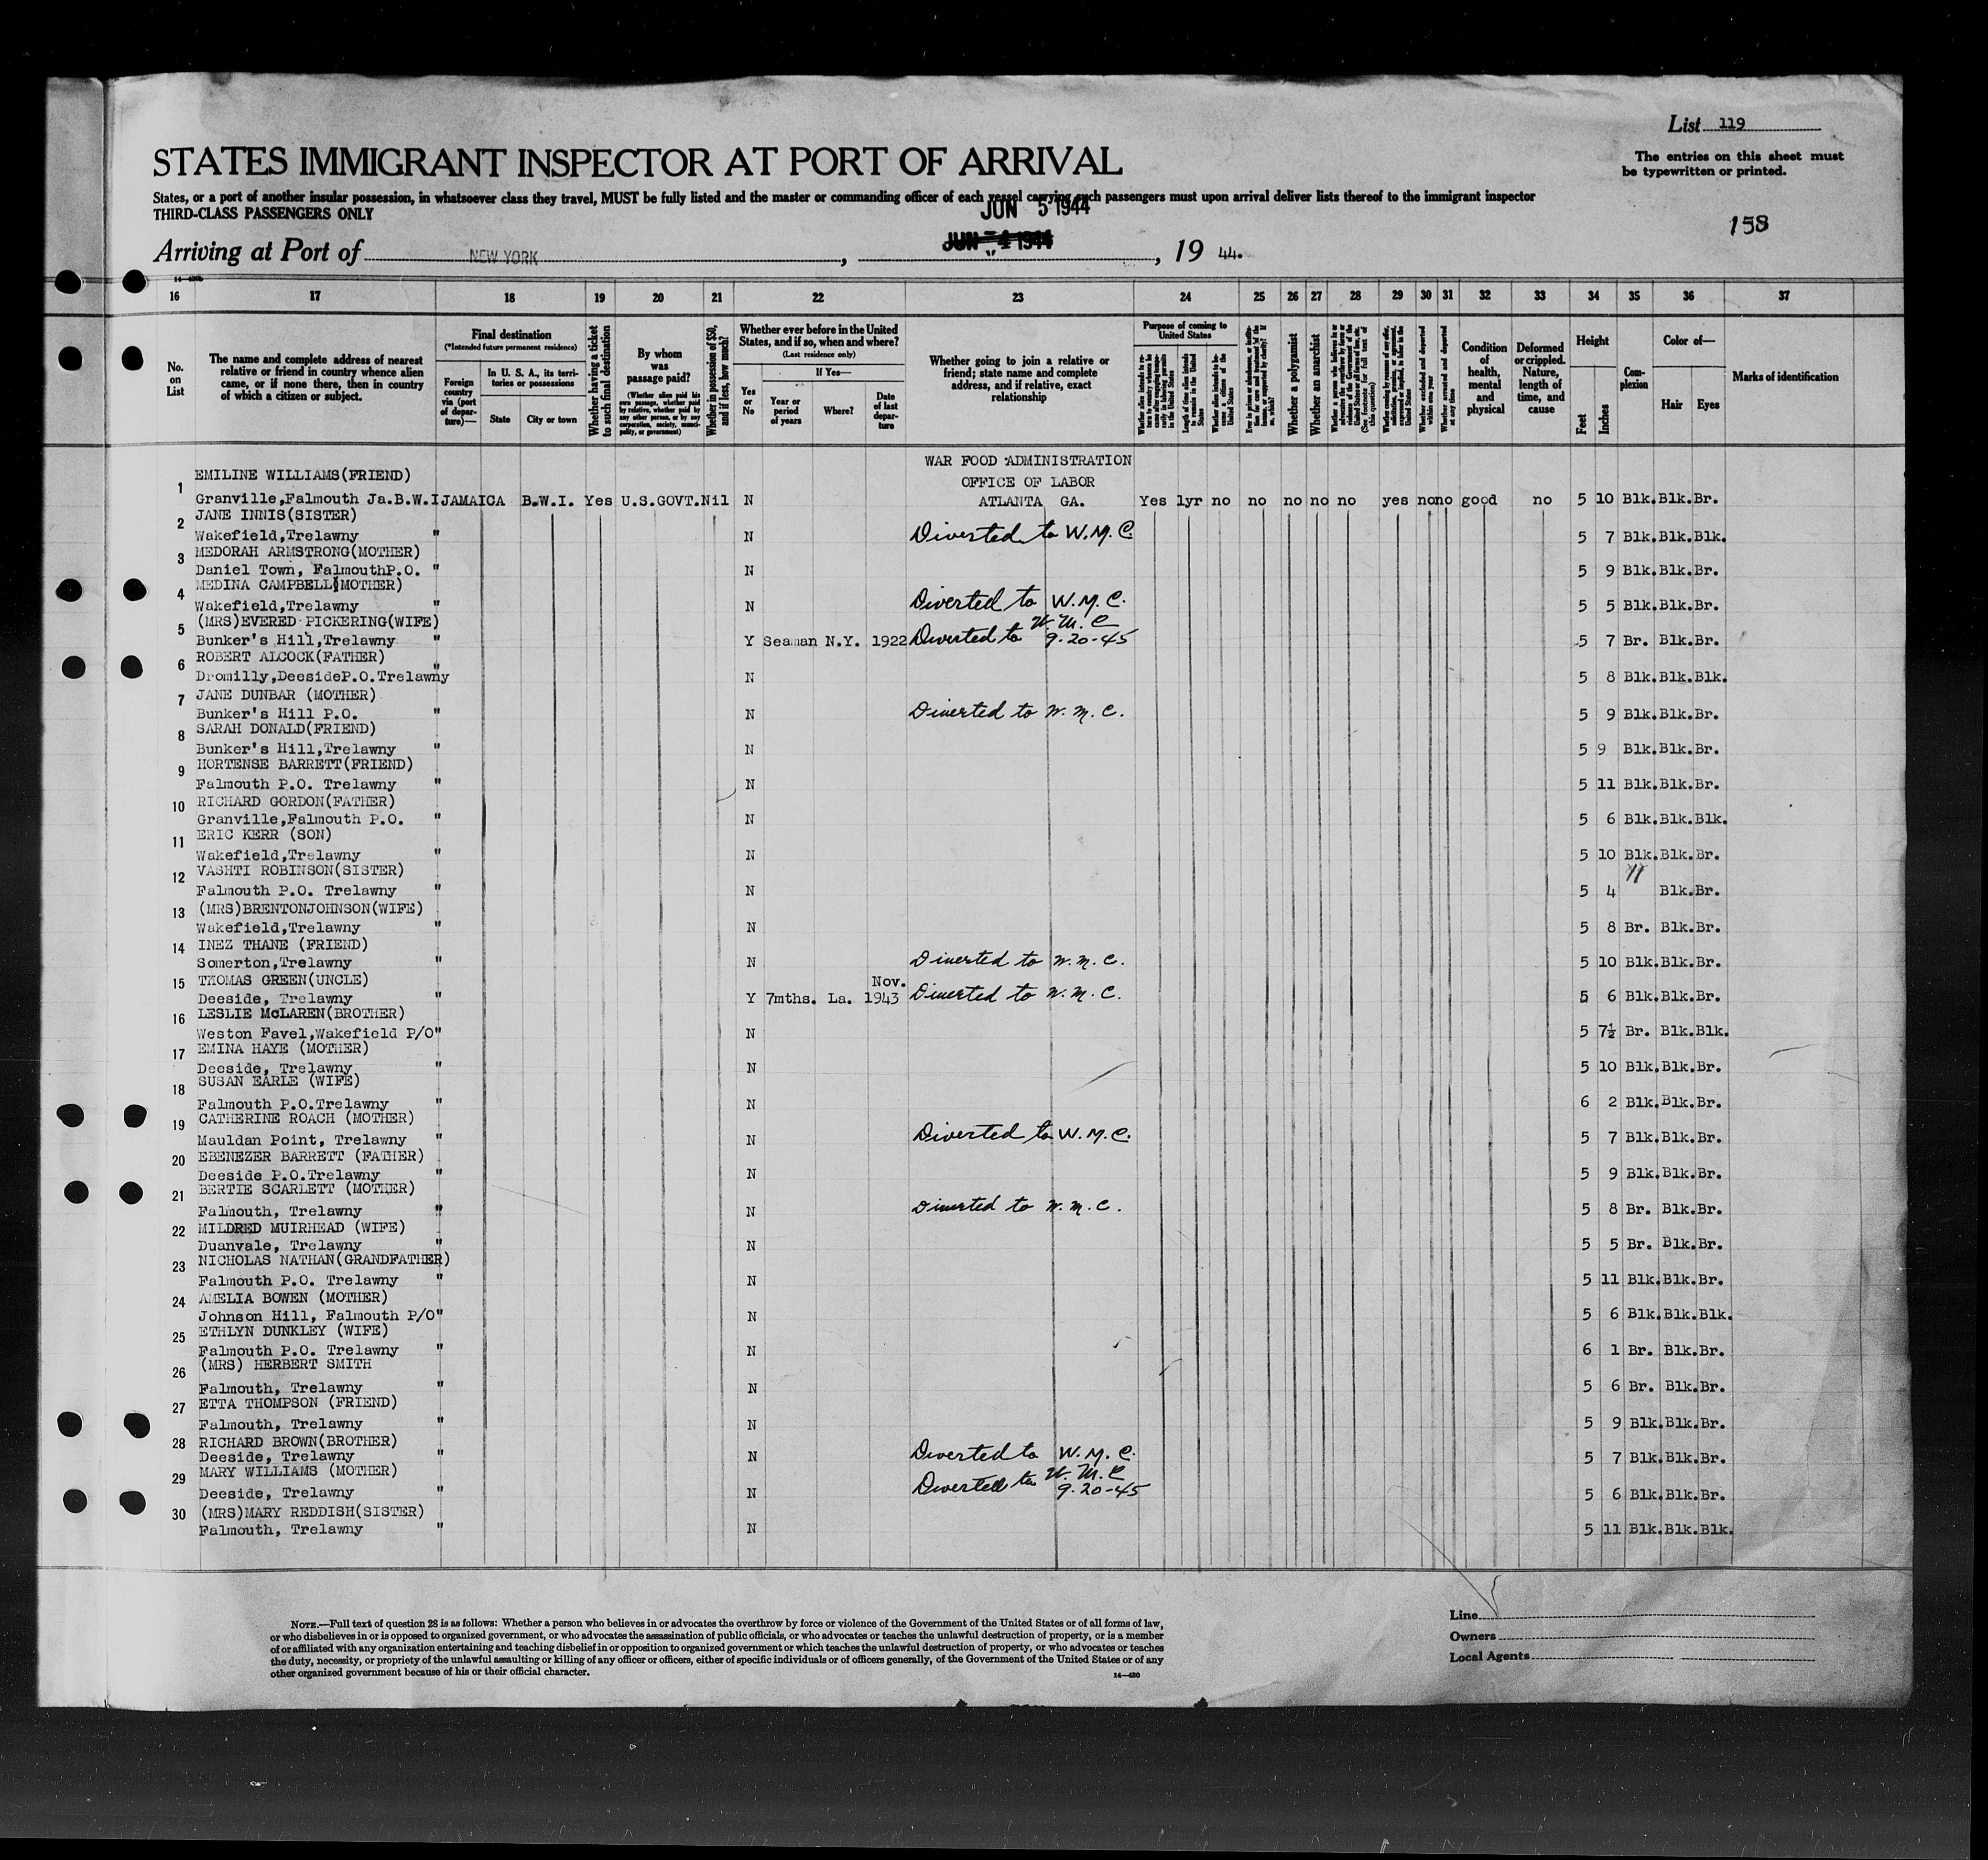 List 119
STATES IMMIGRANT INSPECTOR AT PORT OF ARRIVAL
The entries on this sheet must
be typewritten or printed.
States, or a port of another insular possession, in whatsoever class they travel, MUST be fully listed and the master or commanding officer of each vessel carrying such passengers must upon arrival deliver lists thereof to the immigrant inspector
THIRD-CLASS PASSENGERS ONLY
JUN 5 1944
158
Arriving at Port of NEW YORK, JUN 4 1944, 19 44.
16 17 18 19 20 21 22 23 24 25 26 27 28 29 30 31 32 33 34 35 36 37
No. on List
The name and complete address of nearest relative or friend in country whence alien came, or if none there, then in country of which a citizen or subject.
Final destination
(*Intended future permanent residence)
Foreign country via (port of departure)—
In U. S. A., its territories or possessions
State
City or town
Whether having a ticket to such final destination
By whom was passage paid?
(Whether alien paid his own passage, whether paid by relative, whether paid by any other person, or by any corporation, society, municipality, or government)
Whether in possession of $50, and if less, how much?
Whether ever before in the United States, and if so, when and where?
(Last residence only)
Yes or No
If Yes—
Year or period of years
Where?
Date of last departure
Whether going to join a relative or friend; state name and complete address, and if relative, exact relationship
Purpose of coming to United States
Length of time alien intends to remain in the United States
Whether a polygamist
Whether an anarchist
(See footnote for full text of this question)
Whether excluded and deported within one year
Whether arrested and deported at any time
Condition of health, mental and physical
Deformed or crippled. Nature, length of time, and cause
Height
Feet
Inches
Complexion
Color of—
Hair
Eyes
Marks of identification
WAR FOOD ADMINISTRATION
EMILINE WILLIAMS(FRIEND) OFFICE OF LABOR
1 Granville,Falmouth Ja.B.W.I JAMAICA B.W.I. Yes U.S.GOVT. Nil N ATLANTA GA. Yes 1yr no no no no no yes no no good no 5 10 Blk. Blk. Br.
JANE INNIS(SISTER)
2 Wakefield,Trelawny " N Diverted to W.M.C. 5 7 Blk. Blk. Blk.
MEDORAH ARMSTRONG(MOTHER)
3 Daniel Town, FalmouthP.O. " N 5 9 Blk. Blk. Br.
MEDINA CAMPBELL(MOTHER)
4 Wakefield,Trelawny " N Diverted to W.M.C. 5 5 Blk. Blk. Br.
(MRS)EVERED PICKERING(WIFE) W.M.C
5 Bunker's Hill,Trelawny " Y Seaman N.Y. 1922 Diverted to 9-20-45 5 7 Br. Blk. Br.
ROBERT ALCOCK(FATHER)
6 Dromilly,DeesideP.O.Trelawny " N 5 8 Blk. Blk. Blk.
JANE DUNBAR (MOTHER)
7 Bunker's Hill P.O. " N Diverted to W.M.C. 5 9 Blk. Blk. Br.
SARAH DONALD(FRIEND)
8 Bunker's Hill,Trelawny " N 5 9 Blk. Blk. Br.
HORTENSE BARRETT(FRIEND)
9 Falmouth P.O. Trelawny " N 5 11 Blk. Blk. Br.
RICHARD GORDON(FATHER)
10 Granville,Falmouth P.O. " N 5 6 Blk. Blk. Blk.
ERIC KERR (SON)
11 Wakefield,Trelawny " N 5 10 Blk. Blk. Br.
VASHTI ROBINSON(SISTER)
12 Falmouth P.O. Trelawny " N 5 4 " Blk. Br.
(MRS)BRENTONJOHNSON(WIFE)
13 Wakefield,Trelawny " N 5 8 Br. Blk. Br.
INEZ THANE (FRIEND)
14 Somerton,Trelawny " N Diverted to W.M.C. 5 10 Blk. Blk. Br.
THOMAS GREEN(UNCLE) Nov.
15 Deeside, Trelawny " Y 7mths. La. 1943 Diverted to W.M.C. 5 6 Blk. Blk. Br.
LESLIE McLAREN(BROTHER)
16 Weston Favel,Wakefield P/O" N 5 7½ Br. Blk. Blk.
EMINA HAYE (MOTHER)
17 Deeside, Trelawny " N 5 10 Blk. Blk. Br.
SUSAN EARLE (WIFE)
18 Falmouth P.O.Trelawny " N 6 2 Blk. Blk. Br.
CATHERINE ROACH (MOTHER)
19 Mauldan Point, Trelawny " N Diverted to W.M.C. 5 7 Blk. Blk. Br.
EBENEZER BARRETT (FATHER)
20 Deeside P.O.Trelawny " N 5 9 Blk. Blk. Br.
BERTIE SCARLETT (MOTHER)
21 Falmouth, Trelawny " N Diverted to W.M.C. 5 8 Br. Blk. Br.
MILDRED MUIRHEAD (WIFE)
22 Duanvale, Trelawny " N 5 5 Br. Blk. Br.
NICHOLAS NATHAN(GRANDFATHER)
23 Falmouth P.O. Trelawny " N 5 11 Blk. Blk. Br.
AMELIA BOWEN (MOTHER)
24 Johnson Hill, Falmouth P/O" N 5 6 Blk. Blk. Blk.
ETHLYN DUNKLEY (WIFE)
25 Falmouth P.O. Trelawny " N 6 1 Br. Blk. Br.
(MRS) HERBERT SMITH
26 Falmouth, Trelawny " N 5 6 Br. Blk. Br.
ETTA THOMPSON (FRIEND)
27 Falmouth, Trelawny " N 5 9 Blk. Blk. Br.
RICHARD BROWN(BROTHER)
28 Deeside, Trelawny " N Diverted to W.M.C. 5 7 Blk. Blk. Br.
MARY WILLIAMS (MOTHER) W.M.C
29 Deeside, Trelawny " N Diverted to 9-20-45 5 6 Blk. Blk. Br.
30 (MRS)MARY REDDISH(SISTER)
Falmouth, Trelawny " N 5 11 Blk. Blk. Blk.
NOTE.—Full text of question 28 is as follows: Whether a person who believes in or advocates the overthrow by force or violence of the Government of the United States or of all forms of law,
or who disbelieves in or is opposed to organized government, or who advocates the assassination of public officials, or who advocates or teaches the unlawful destruction of property, or is a member
of or affiliated with any organization entertaining and teaching disbelief in or opposition to organized government or which teaches the unlawful destruction of property, or who advocates or teaches
the duty, necessity, or propriety of the unlawful assaulting or killing of any officer or officers, either of specific individuals or of officers generally, of the Government of the United States or of any
other organized government because of his or their official character.
14—430
Line
Owners
Local Agents